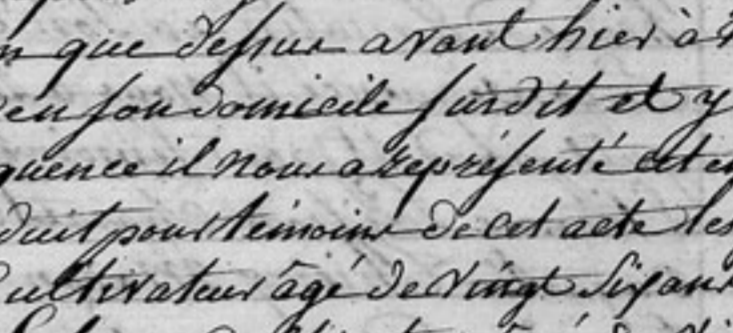 n que dessus avant hier à
en son domicile susdit et y
quence il nous a représenté cet en
duit pour témoins de cet acte les
Cultivateur âgé de vingt six ans